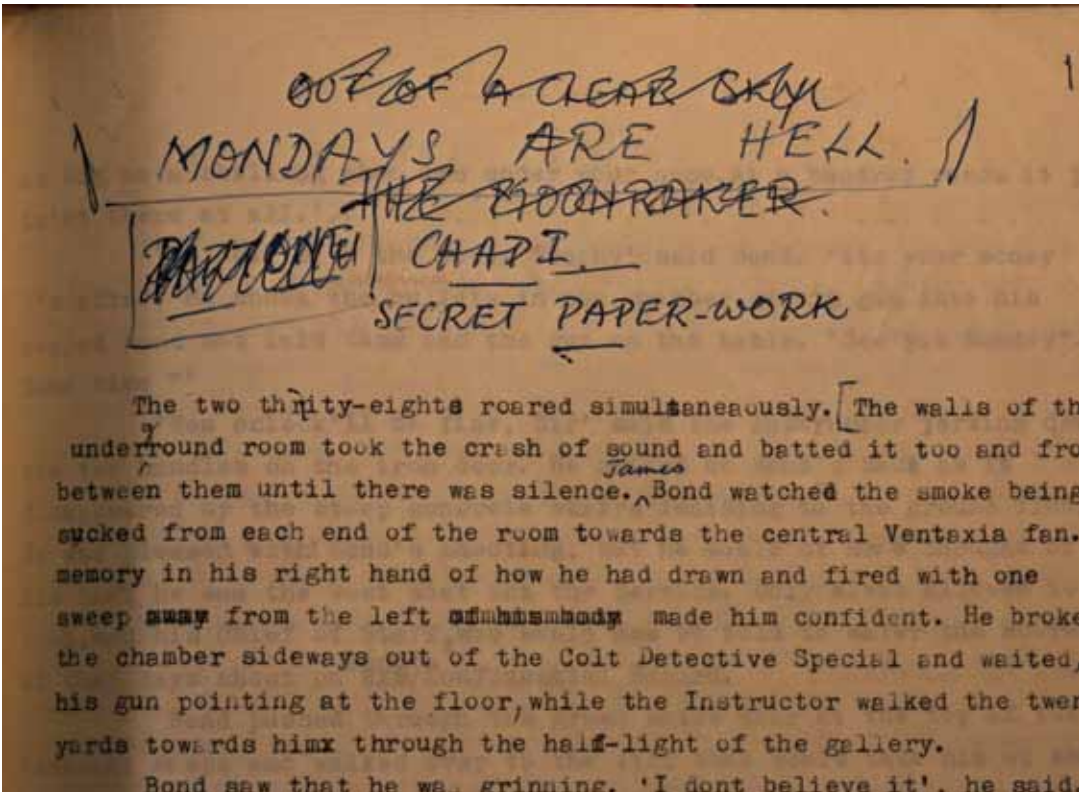 OUT OF A CLEAR SKY
1
MONDAYS ARE HELL.
THE MOONRAKER.
CHAP I.
SECRET PAPER-WORK
The two thrity-eights roared simultaneaously. [The walls of th
underground room took the crash of sound and batted it too and fro
between them until there was silence. James Bond watched the smoke being
sucked from each end of the room towards the central Ventaxia fan.
memory in his right hand of how he had drawn and fired with one
sweep away from the left of his body made him confident. He broke
the chamber sideways out of the Colt Detective Special and waited,
his gun pointing at the floor, while the Instructor walked the twen
yards towards himx through the half-light of the gallery.
Bond saw that he was grinning. 'I dont believe it', he said.